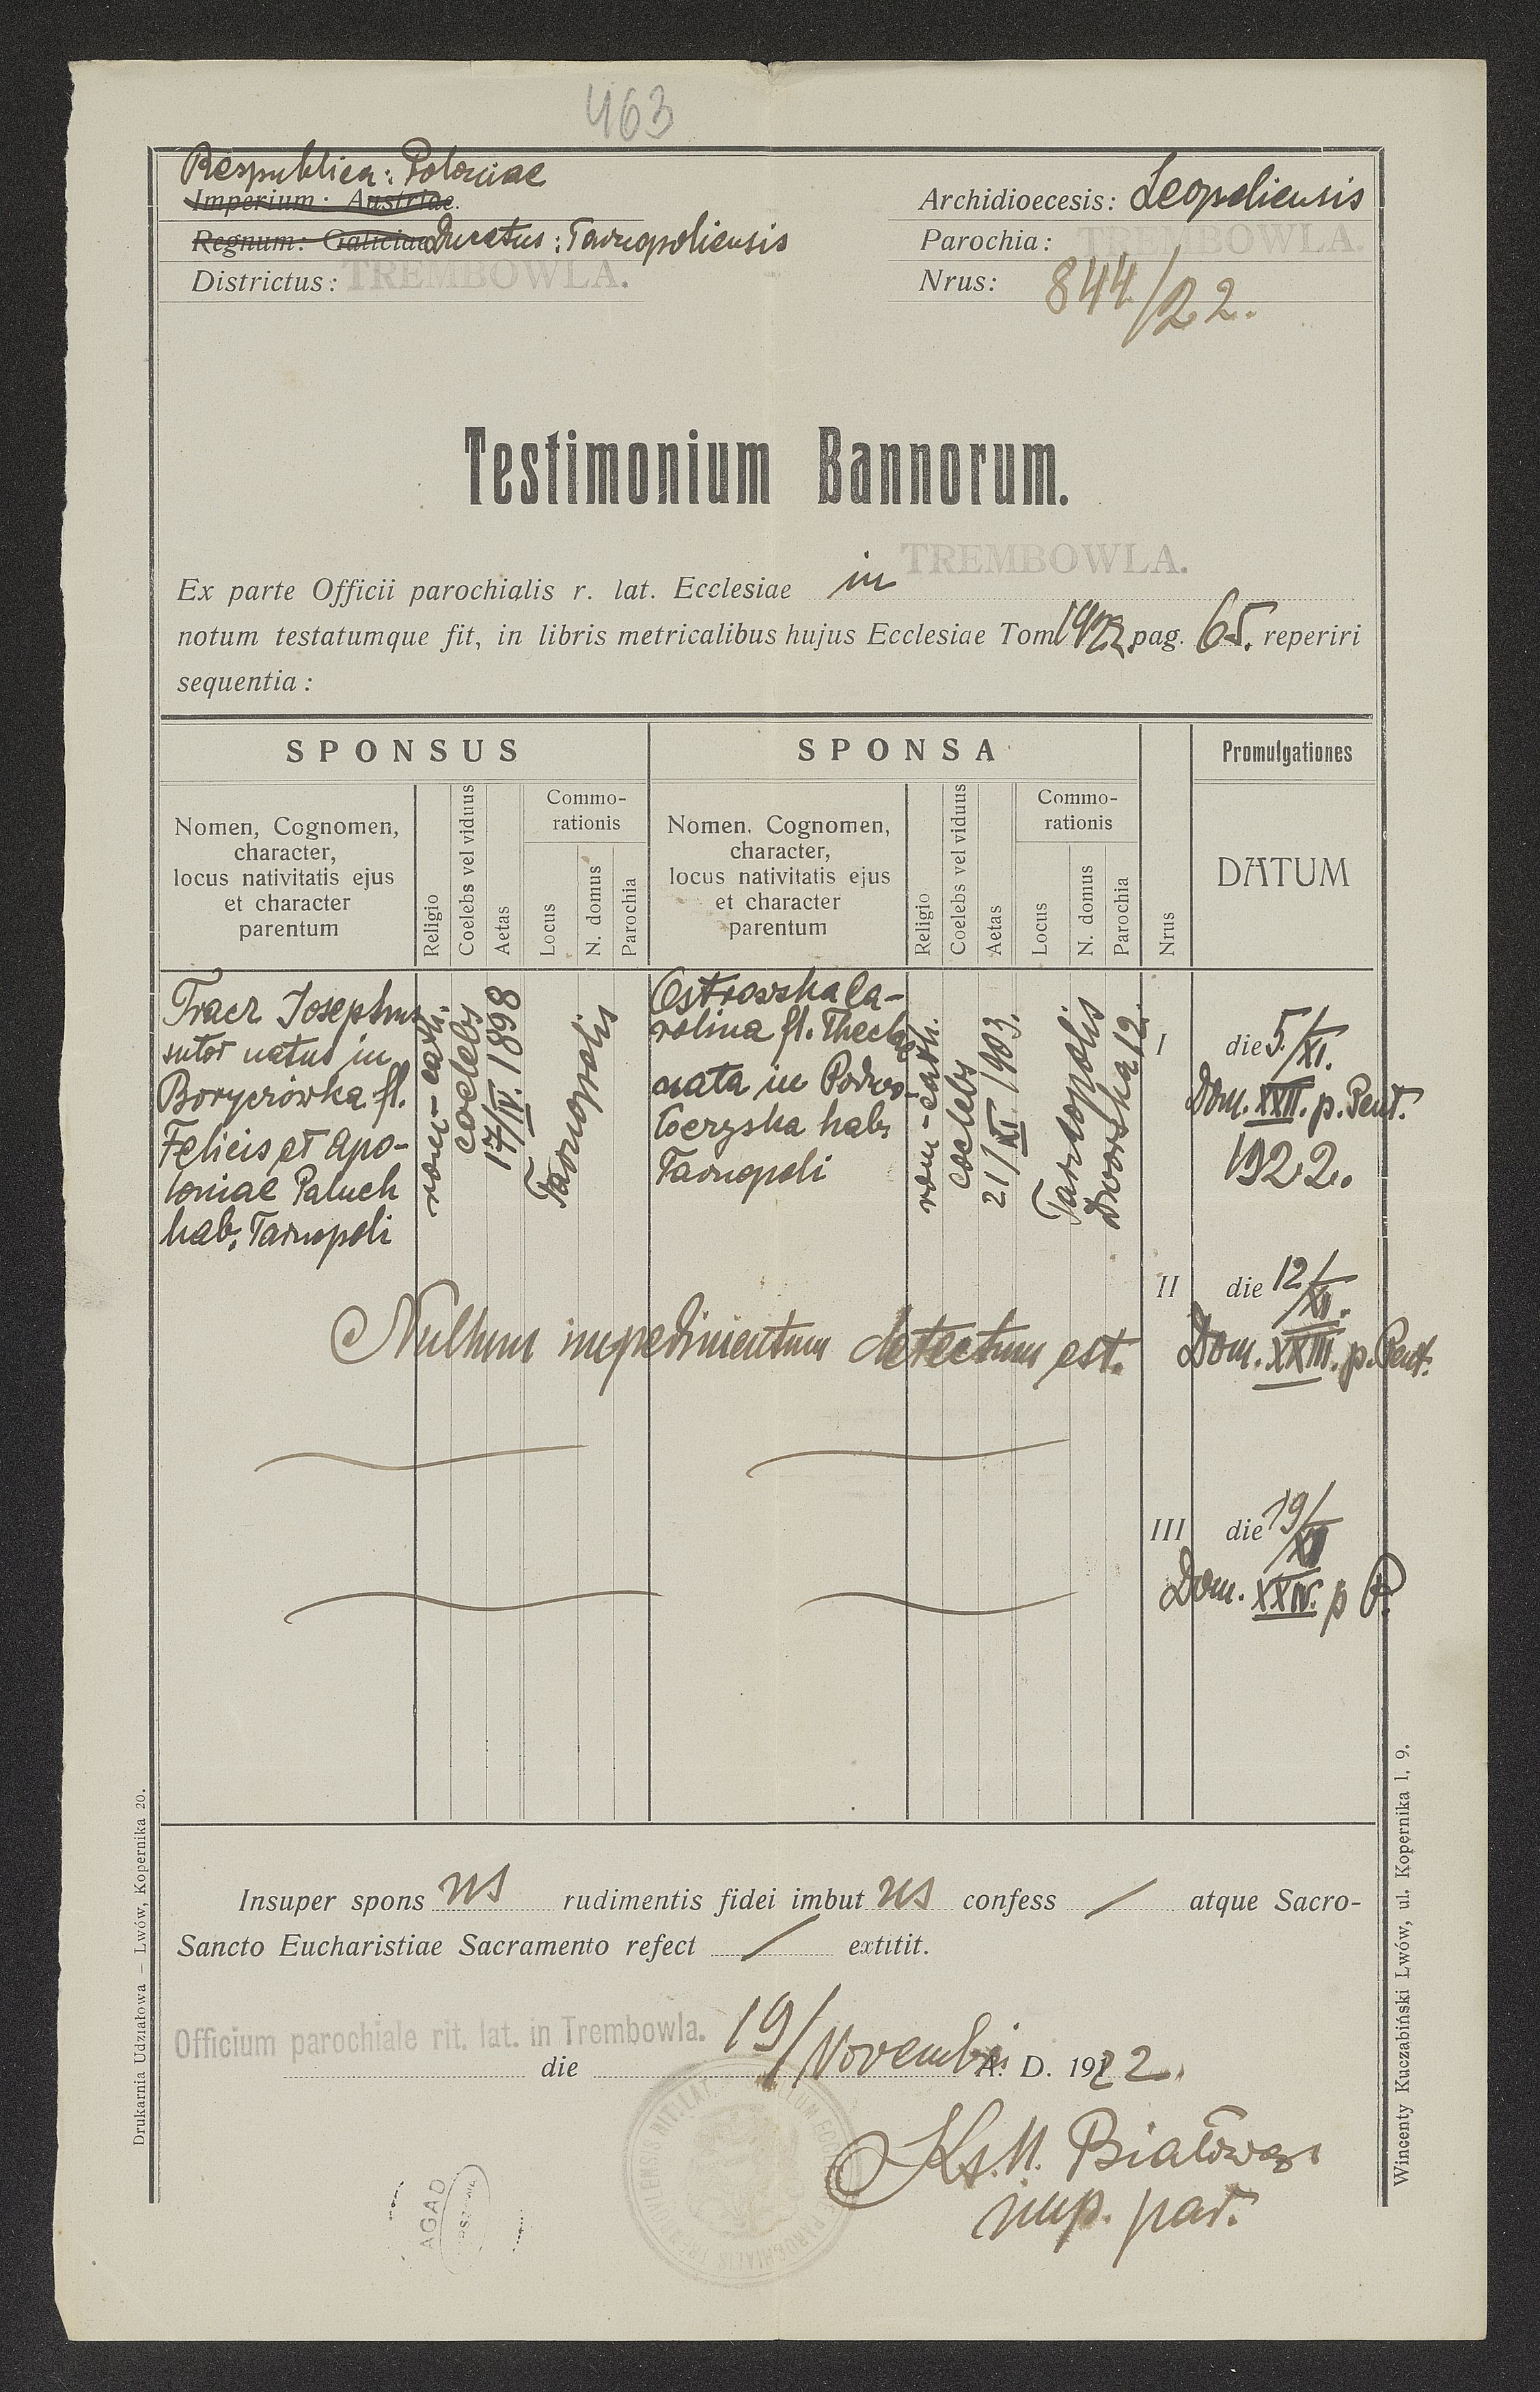 463
Respublica: Poloniae
Imperium: Austriae.
Regnum: Galiciae Ducatus: Tarnopoliensis
Districtus: TREMBOWLA.
Archidioecesis: Leopoliensis
Parochia: TREMBOWLA.
Nrus: 844/22.
Testimonium Bannorum.
TREMBOWLA.
Ex parte Officii parochialis r. lat. Ecclesiae in
notum testatumque fit, in libris metricalibus hujus Ecclesiae Tom 1922 pag. 65. reperiri
sequentia:
SPONSUS
SPONSA
Promulgationes
Nomen, Cognomen,
character,
locus nativitatis ejus
et character
parentum
Religio
Coelebs vel viduus
Aetas
Commo-
rationis
Locus
N. domus
Parochia
Nomen. Cognomen,
character,
locus nativitatis ejus
et character
parentum
Religio
Coelebs vel viduus
Aetas
Commo-
rationis
Locus
N. domus
Parochia
Nrus
DATUM
Tracz Josephus
sutor natus in
Boryczówka fl.
Felicis et Apo-
loniae Paluch
hab. Tarnopoli
rom-cath.
coelebs
17/IV. 1898
Tarnopolis
Ostrowska Ca-
rolina fl. Theclae
nata in Podwo-
łoczyska hab.
Tarnopoli
rom-cath.
coelebs
21/XI. 1903.
Tarnopolis
Dworska 12.
I
die 5/XI.
Dom. XXII. p. Pent.
1922.
II
die 12/XI.
Dom. XXIII. p. Pent.
Nullum impedimentum detectum est.
III
die 19/XI
Dom. XXIV. p P.
Insuper spons us rudimentis fidei imbut us confess / atque Sacro-
Sancto Eucharistiae Sacramento refect / extitit.
Officium parochiale rit. lat. in Trembowla.
die 19/Novembris A. D. 1922.
Ks. M. Białowąs
mp. par.
AGAD
Drukarnia Udziałowa — Lwów, Kopernika 20.
Wincenty Kuczabiński Lwów, ul. Kopernika l. 9.